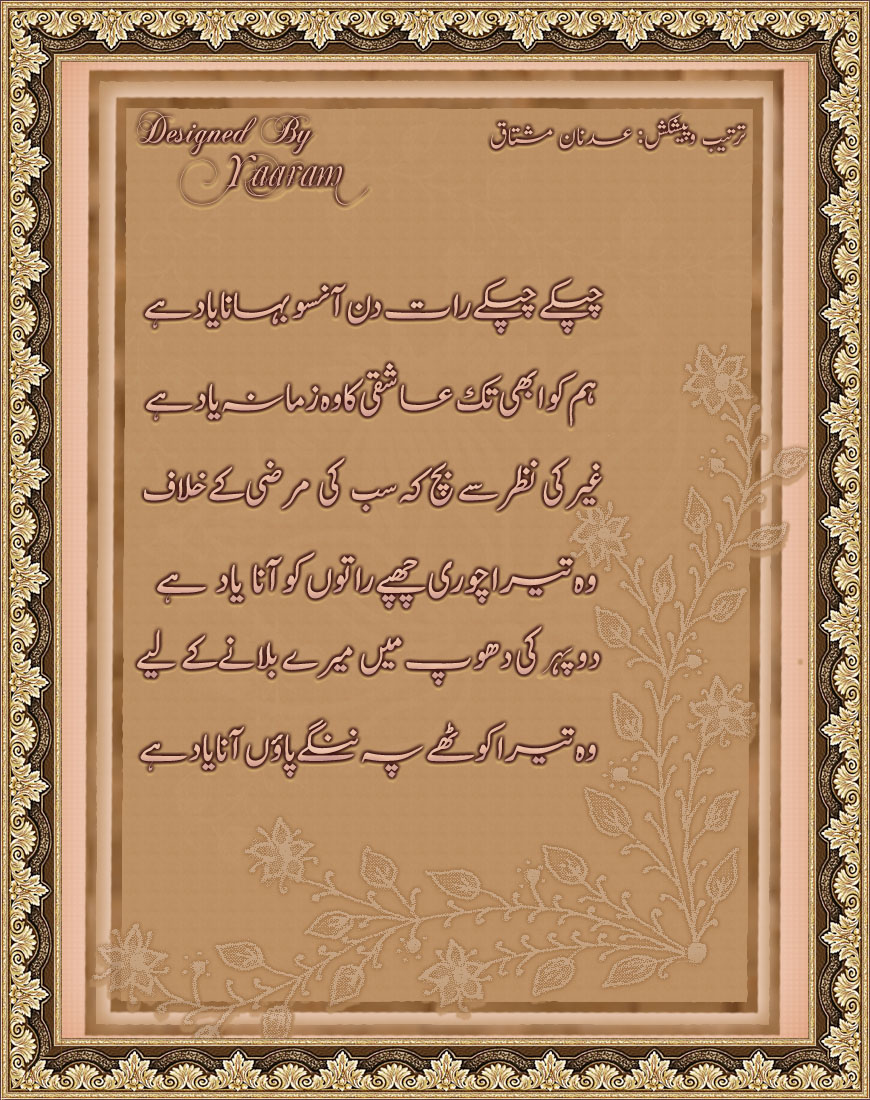 Designed By
Yaaram
ترتیب و پیشکش: عدنان مشتاق
چپکے چپکے رات دن آنسو بہانا یاد ہے
ہم کو ابھی تک عاشقی کا وہ زمانہ یاد ہے
غیر کی نظر سے بچ کہ سب کی مرضی کے خلاف
وہ تیرا چوری چھپے راتوں کو آنا یاد ہے
دوپہر کی دھوپ میں میرے بلانے کے لیے
وہ تیرا کوٹھے پہ ننگے پاؤں آنا یاد ہے